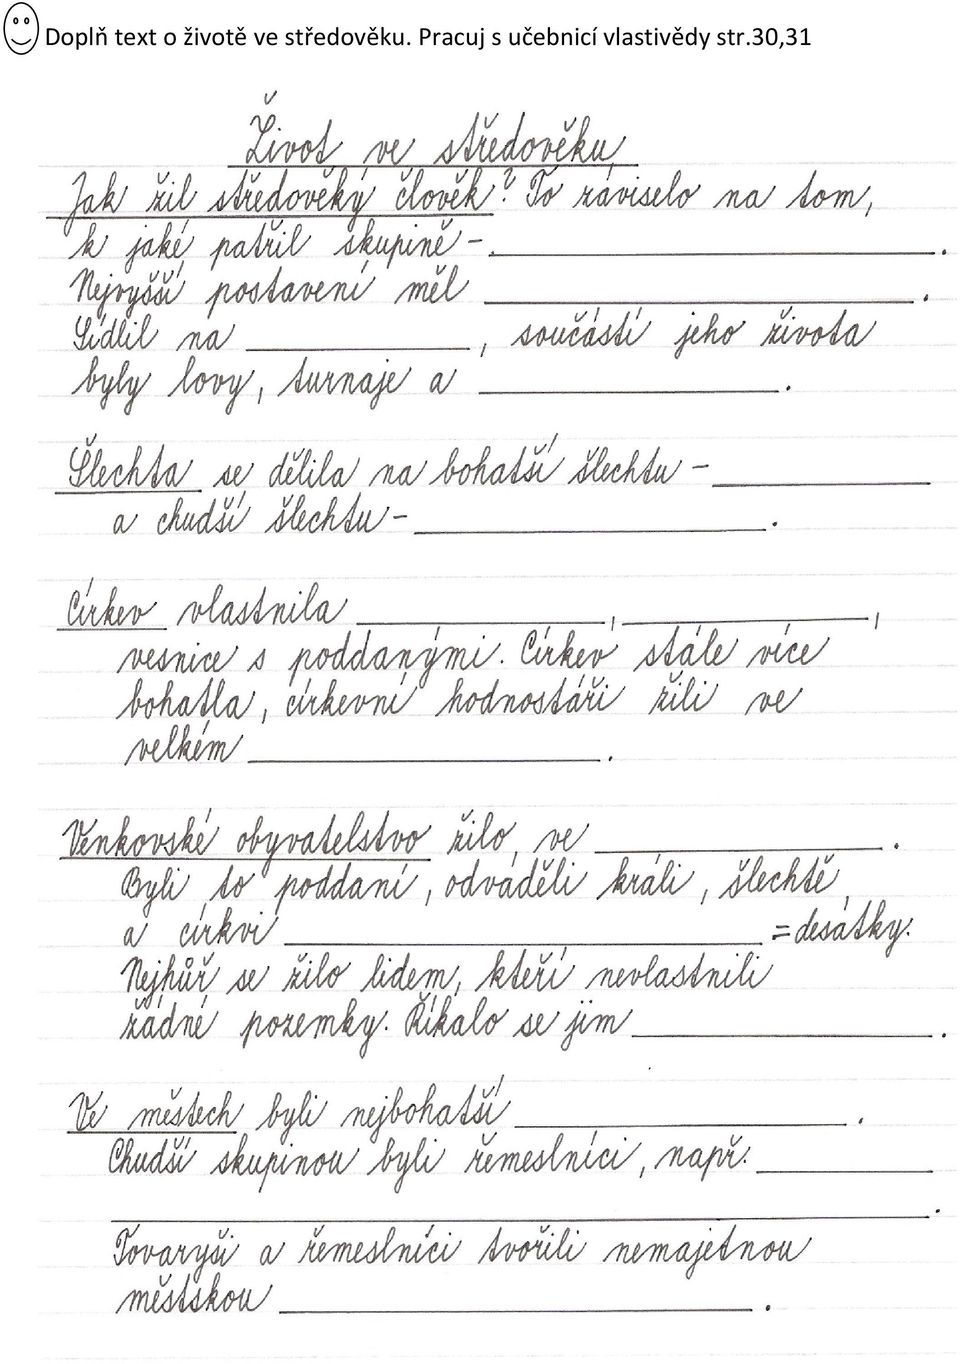 Doplň text o životě ve středověku. Pracuj s učebnicí vlastivědy str.30,31
Život ve středověku
Jak žil středověký člověk? To záviselo na tom,
k jaké patřil skupině - ____________.
Nejvyšší postavení měl ____________.
Sídlil na ____________, součástí jeho života
byly lovy, turnaje a ____________.
Šlechta se dělila na bohatší šlechtu - ____________
a chudší šlechtu - ____________.
Církev vlastnila ____________, ____________,
vesnice s poddanými. Církev stále více
bohatla, církevní hodnostáři žili ve
velkém ____________.
Venkovské obyvatelstvo žilo ve ____________.
Byli to poddaní, odváděli králi, šlechtě
a církvi ____________ = desátky.
Nejhůř se žilo lidem, kteří nevlastnili
žádné pozemky. Říkalo se jim ____________.
Ve městech byli nejbohatší ____________.
Chudší skupinou byli řemeslníci, např. ____________
____________.
Tovaryši a řemeslníci tvořili nemajetnou
městskou ____________.